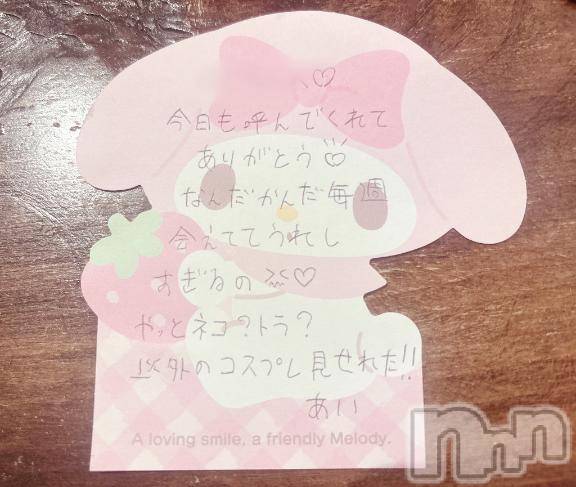 、♡
今日も呼んでくれて
ありがとう♡
なんだかんだ毎週
会えててうれし
すぎるの ♡
やっとネコ?トラ?
以外のコスプレ見せれた!!
あい
A loving smile, a friendly Melody.
nnn